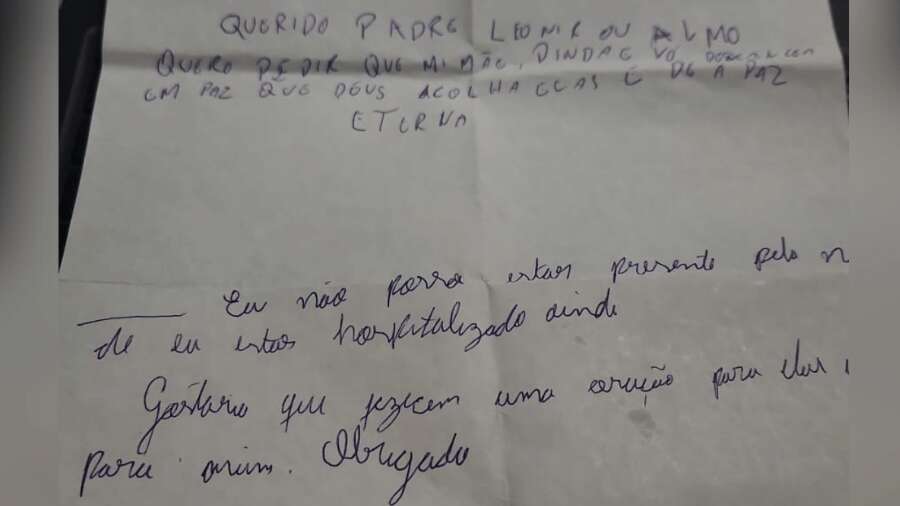 QUERIDO PADRE LEONIR OU ALMO
QUERO PEDIR QUE MI MÃE, DINDA E VÓ DESCANSEM
EM PAZ QUE DEUS ACOLHA ELAS E DE A PAZ
ETERNA
Eu não posso estar presente pelo
de eu estar hospitalizado ainda
Gostaria que fizecem uma oração para elas
para mim. Obrigado